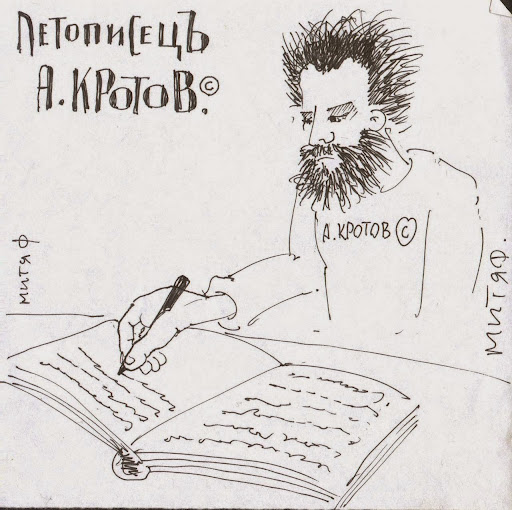 ЛЕТОПИСЕЦЪ
А. КРОТОВ.©
А.КРОТОВ ©
МИТЯ Ф
МИТЯ Ф.